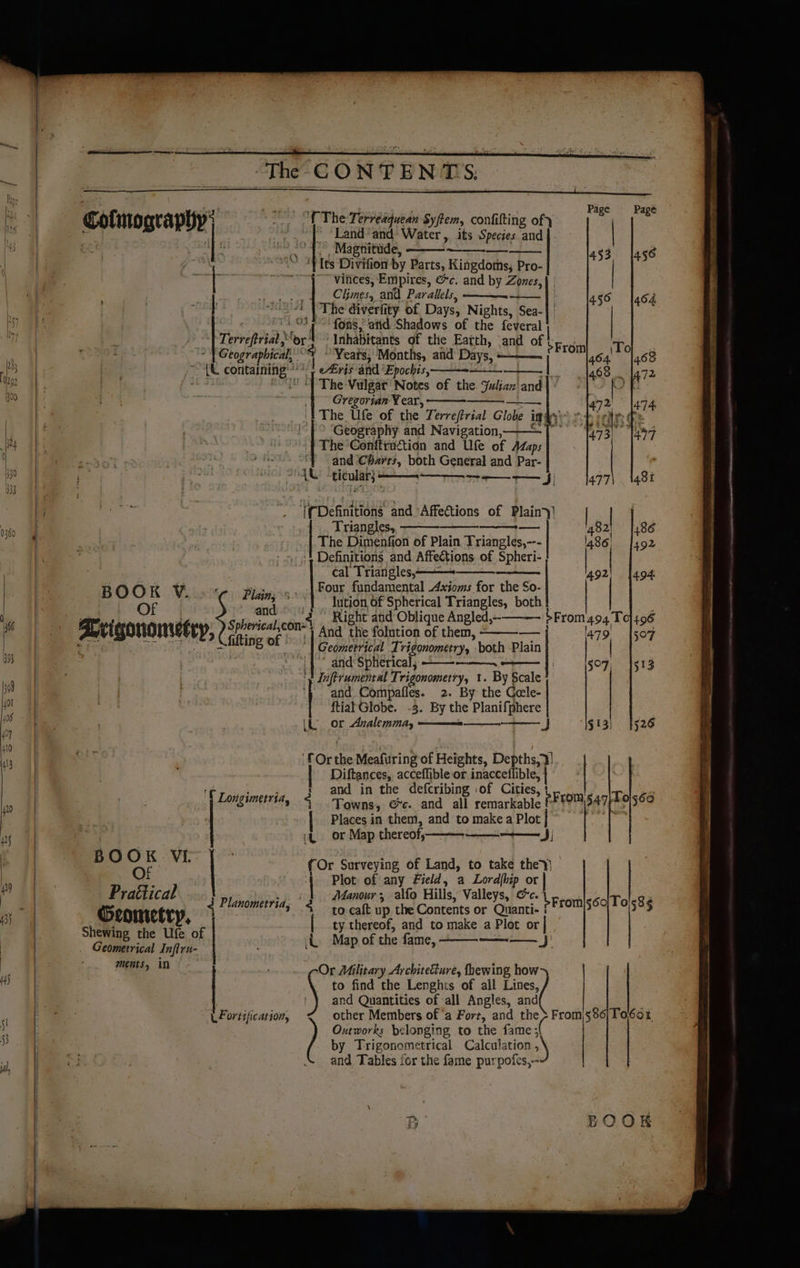 The CONTENTS.
Page Page
Cosmography;
Terrestrial, or
Geographical,
containing
The Terreaquean System, consisting of
Land and Water, its Species and
Magnitude, 453 456
Its Division by Parts, Kingdoms, Pro-
vinces, Empires, &c. and by Zones,
Climes, and Parallels, 456 464
The diversity of Days, Nights, Sea-
sons, and Shadows of the several
Inhabitants of the Earth, and of
Years, Months, and Days, From 464 To 468
Æris and Epochis, 468 472
The Vulgar Notes of the Julian and
Gregorian Year, 472 474
The Use of the Terrestrial Globe in
Geography and Navigation, 473 477
The Construction and Use of Maps
and Charts, both General and Par-
ticular; 477 481
BOOK V.
Of
Trigonometry,
Plain,
and
Spherical, con-
sisting of
Definitions and Affections of Plain
Triangles, 482 486
The Dimension of Plain Triangles,--- 486 492
Definitions and Affections of Spheri-
cal Triangles, 492 494
Four fundamental Axioms for the So-
lution of Spherical Triangles, both
Right and Oblique Angled, From 494 To 496
And the solution of them, 479 507
Geometrical Trigonometry, both Plain
and Spherical, 507 513
Instrumental Trigonometry, 1. By Scale
and Compasses. 2. By the Cœle-
stial Globe. 3. By the Planisphere
or Analemma, 513 526
BOOK VI.
Of
Practical
Geometry,
Shewing the Use of
Geometrical Instru-
ments, in
Longimetria,
Or the Measuring of Heights, Depths,
Distances, accessible or inaccessible,
and in the describing of Cities,
Towns, &c. and all remarkable From 547 To 560
Places in them, and to make a Plot
or Map thereof,
Planometria,
Or Surveying of Land, to take the
Plot of any Field, a Lordship or
Manour; also Hills, Valleys, &c.
to cast up the Contents or Quanti- From 560 To 585
ty thereof, and to make a Plot or
Map of the same,
Fortification,
Or Military Architecture, shewing how
to find the Lenghts of all Lines,
and Quantities of all Angles, and
other Members of a Fort, and the From 586 To 601
Outworks belonging to the same;
by Trigonometrical Calculation,
and Tables for the same purposes,--
B BOOK